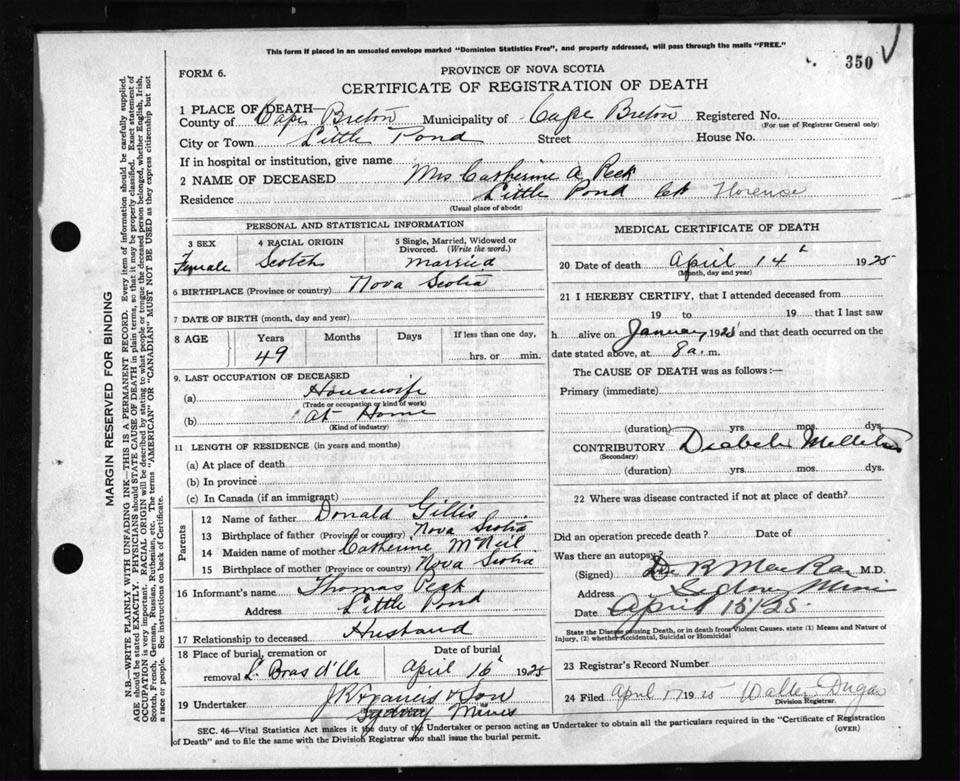 This form if placed in an unsealed envelope marked "Dominion Statistics Free", and properly addressed, will pass through the mails "FREE."
350
FORM 6.
PROVINCE OF NOVA SCOTIA
CERTIFICATE OF REGISTRATION OF DEATH
1 PLACE OF DEATH—
County of Cape Breton Municipality of Cape Breton Registered No.
(For use of Registrar General only)
City or Town Little Pond Street House No.
If in hospital or institution, give name
2 NAME OF DECEASED Mrs Catherine A Peck
Residence Little Pond Florence
(Usual place of abode)
PERSONAL AND STATISTICAL INFORMATION
3 SEX 4 RACIAL ORIGIN 5 Single, Married, Widowed or Divorced. (Write the word.)
Female Scotch married
6 BIRTHPLACE (Province or country) Nova Scotia
7 DATE OF BIRTH (month, day and year)
8 AGE Years Months Days If less than one day,
49 hrs. or min.
9. LAST OCCUPATION OF DECEASED
(a) Housewife
(Trade or occupation or kind of work)
(b) At Home
(Kind of industry)
11 LENGTH OF RESIDENCE (in years and months)
(a) At place of death
(b) In province
(c) In Canada (if an immigrant)
Parents
12 Name of father Donald Gillis
13 Birthplace of father (Province or country) Nova Scotia
14 Maiden name of mother Catherine McNeil
15 Birthplace of mother (Province or country) Nova Scotia
16 Informant's name Thomas Peck
Address Little Pond
17 Relationship to deceased Husband
18 Place of burial, cremation or removal Date of burial
L. Bras d'Or April 16 1925
19 Undertaker J K Francis & Son
Sydney Mines
MEDICAL CERTIFICATE OF DEATH
20 Date of death April 14 1925
(Month, day and year)
21 I HEREBY CERTIFY, that I attended deceased from
19 to 19 that I last saw
h alive on January 1925 and that death occurred on
date stated above, at 8 a.m.
The CAUSE OF DEATH was as follows:—
Primary (immediate)
(duration) yrs. mos. dys.
CONTRIBUTORY Diabetes Mellitus
(Secondary)
(duration) yrs. mos. dys.
22 Where was disease contracted if not at place of death?
Did an operation precede death? Date of
Was there an autopsy?
(Signed) R MacRae M.D.
Address Sydney Mines
Date April 15/25
State the Disease causing Death, or in death from Violent Causes, state (1) Means and Nature of
Injury, (2) whether Accidental, Suicidal or Homicidal
23 Registrar's Record Number
24 Filed April 17 1925 Walter Dugan
Division Registrar.
SEC. 46—Vital Statistics Act makes it the duty of the Undertaker or person acting as Undertaker to obtain all the particulars required in the "Certificate of Registration
of Death" and to file the same with the Division Registrar who shall issue the burial permit.
(OVER)
MARGIN RESERVED FOR BINDING
N.B.—WRITE PLAINLY WITH UNFADING INK—THIS IS A PERMANENT RECORD. Every item of information should be carefully supplied.
AGE should be stated EXACTLY. PHYSICIANS should STATE CAUSE OF DEATH in plain terms, so that it may be properly classified. Exact statement of
OCCUPATION is very important. RACIAL ORIGIN will be described by stating to what people or tongue the deceased person belonged, whether English, Irish,
Scotch, French, German, Russian, Ruthenian, etc. The terms "AMERICAN" OR "CANADIAN" MUST NOT BE USED as they express citizenship but not
a race or people. See instructions on back of Certificate.